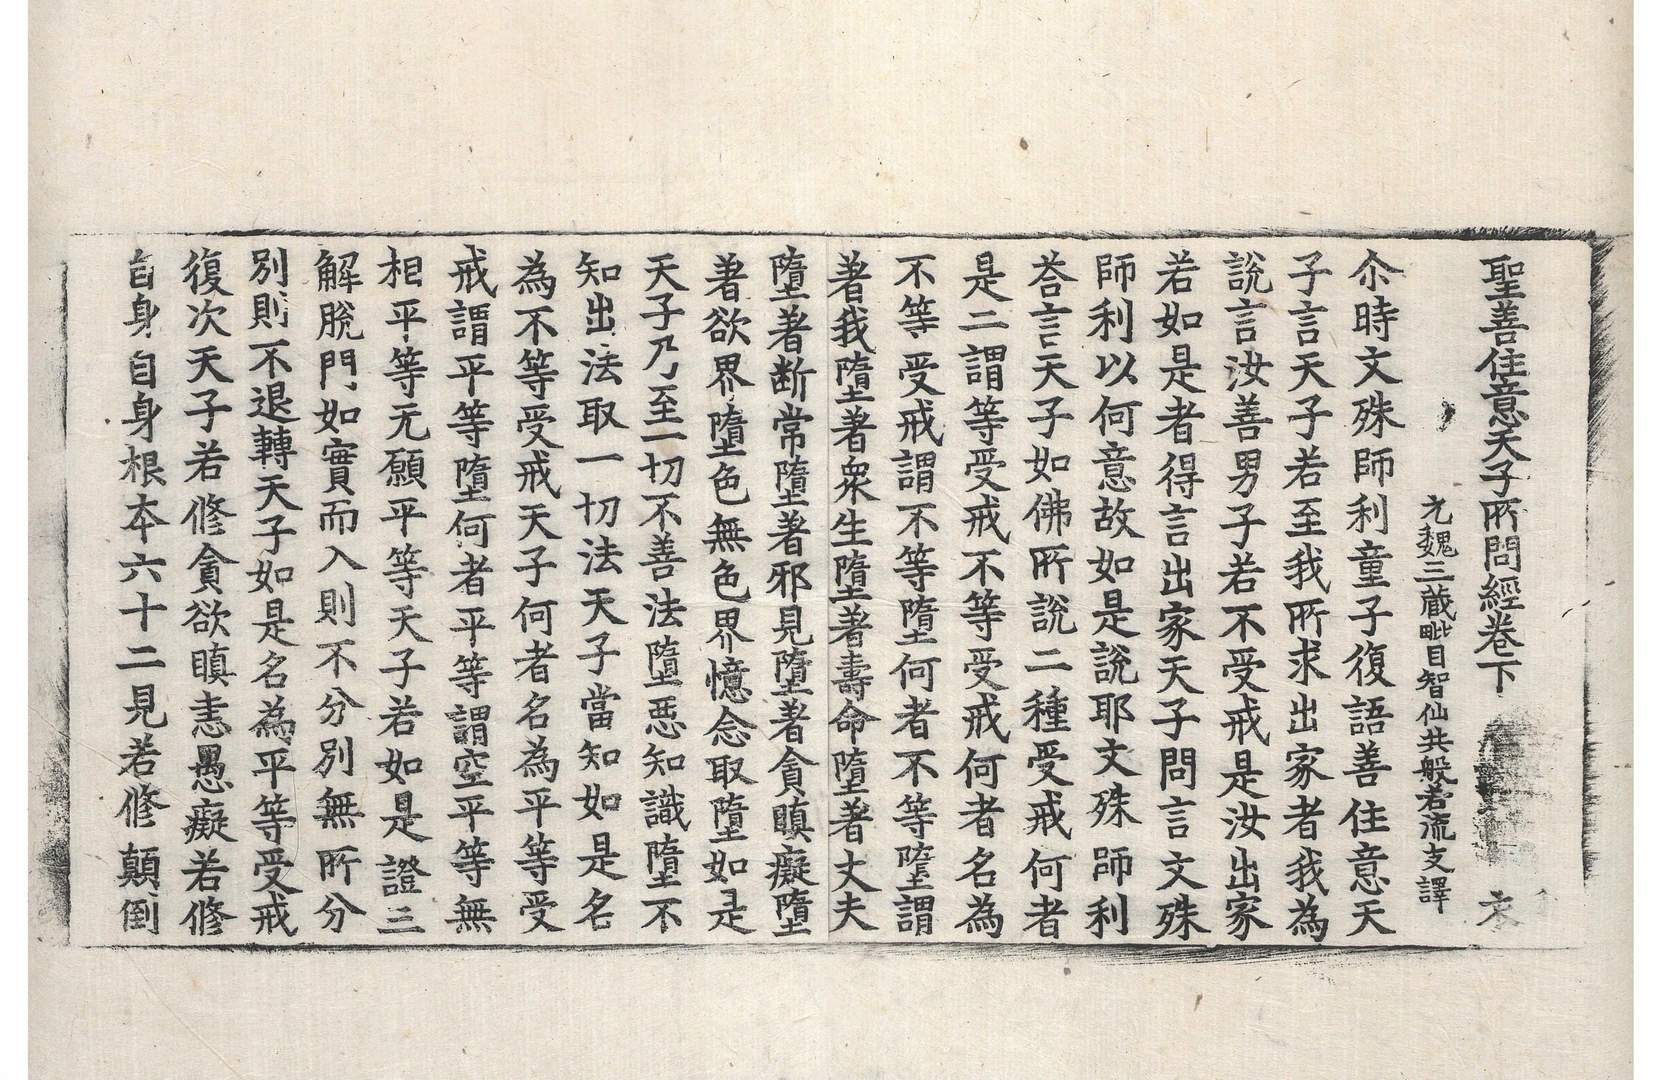 聖善住意天子所問經卷下
元魏三藏毗目智仙共般若流支譯
尒時文殊師利童子復語善住意天
子言天子若至我所求出家者我為
說言汝善男子若不受戒是汝出家
若如是者得言出家天子問言文殊
師利以何意故如是說耶文殊師利
荅言天子如佛所說二種受戒何者
是二謂等受戒不等受戒何者名為
不等受戒謂不等墮何者不等墮謂
著我墮著衆生墮著壽命墮著丈夫
墮著断常墮著邪見墮著貪瞋癡墮
著欲界墮色無色界憶念取墮如是
天子乃至一切不善法墮惡知識墮不
知出法取一切法天子當知如是名
為不等受戒天子何者名為平等受
戒謂平等墮何者平等謂空平等無
相平等无願平等天子若如是證三
解脫門如實而入則不分別無所分
別則不退轉天子如是名為平等受戒
復次天子若修貪欲瞋恚愚癡若修
自身自身根本六十二見若修顛倒